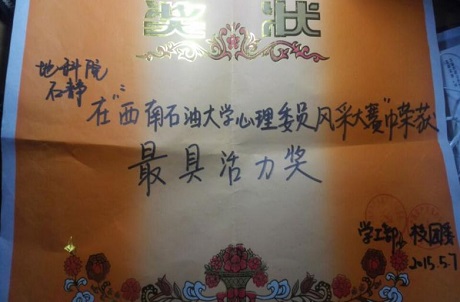 奖状
地科院
石静
在"西南石油大学心理委员风采大赛"中荣获
最具活力奖
学工部、校团委
2015.5.7